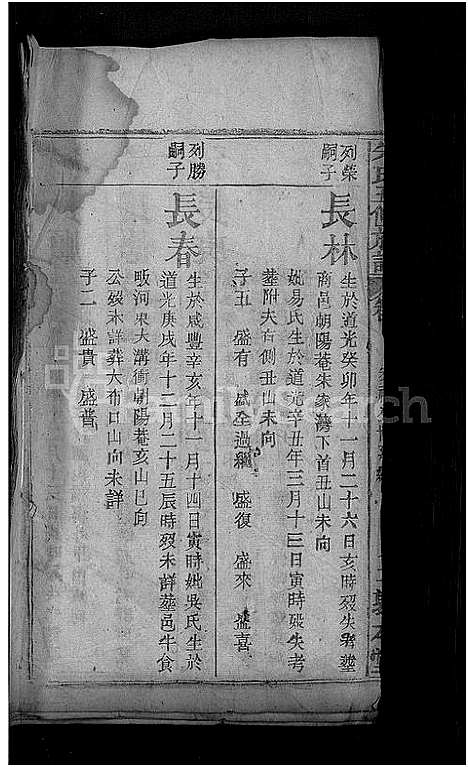 列榮
嗣子
長林
生於道光癸卯年十一月二十六日亥時歿失考塟
商邑朝陽菴朱家灣下首丑山未向
妣易氏生於道光辛丑年三月十三日寅時殁失考
塟附夫右側丑山未向
子五 盛有 盛全過繼 盛復 盛來 盛喜
列勝
嗣子
長春
生於咸豐辛亥年十一月十四日寅時妣吳氏生於
道光庚戌年十二月二十五辰時歿未詳塟邑牛食
畈河東大溝衝朝陽菴亥山巳向
公歿未詳葬大布口山向未詳
子二 盛貴 盛普